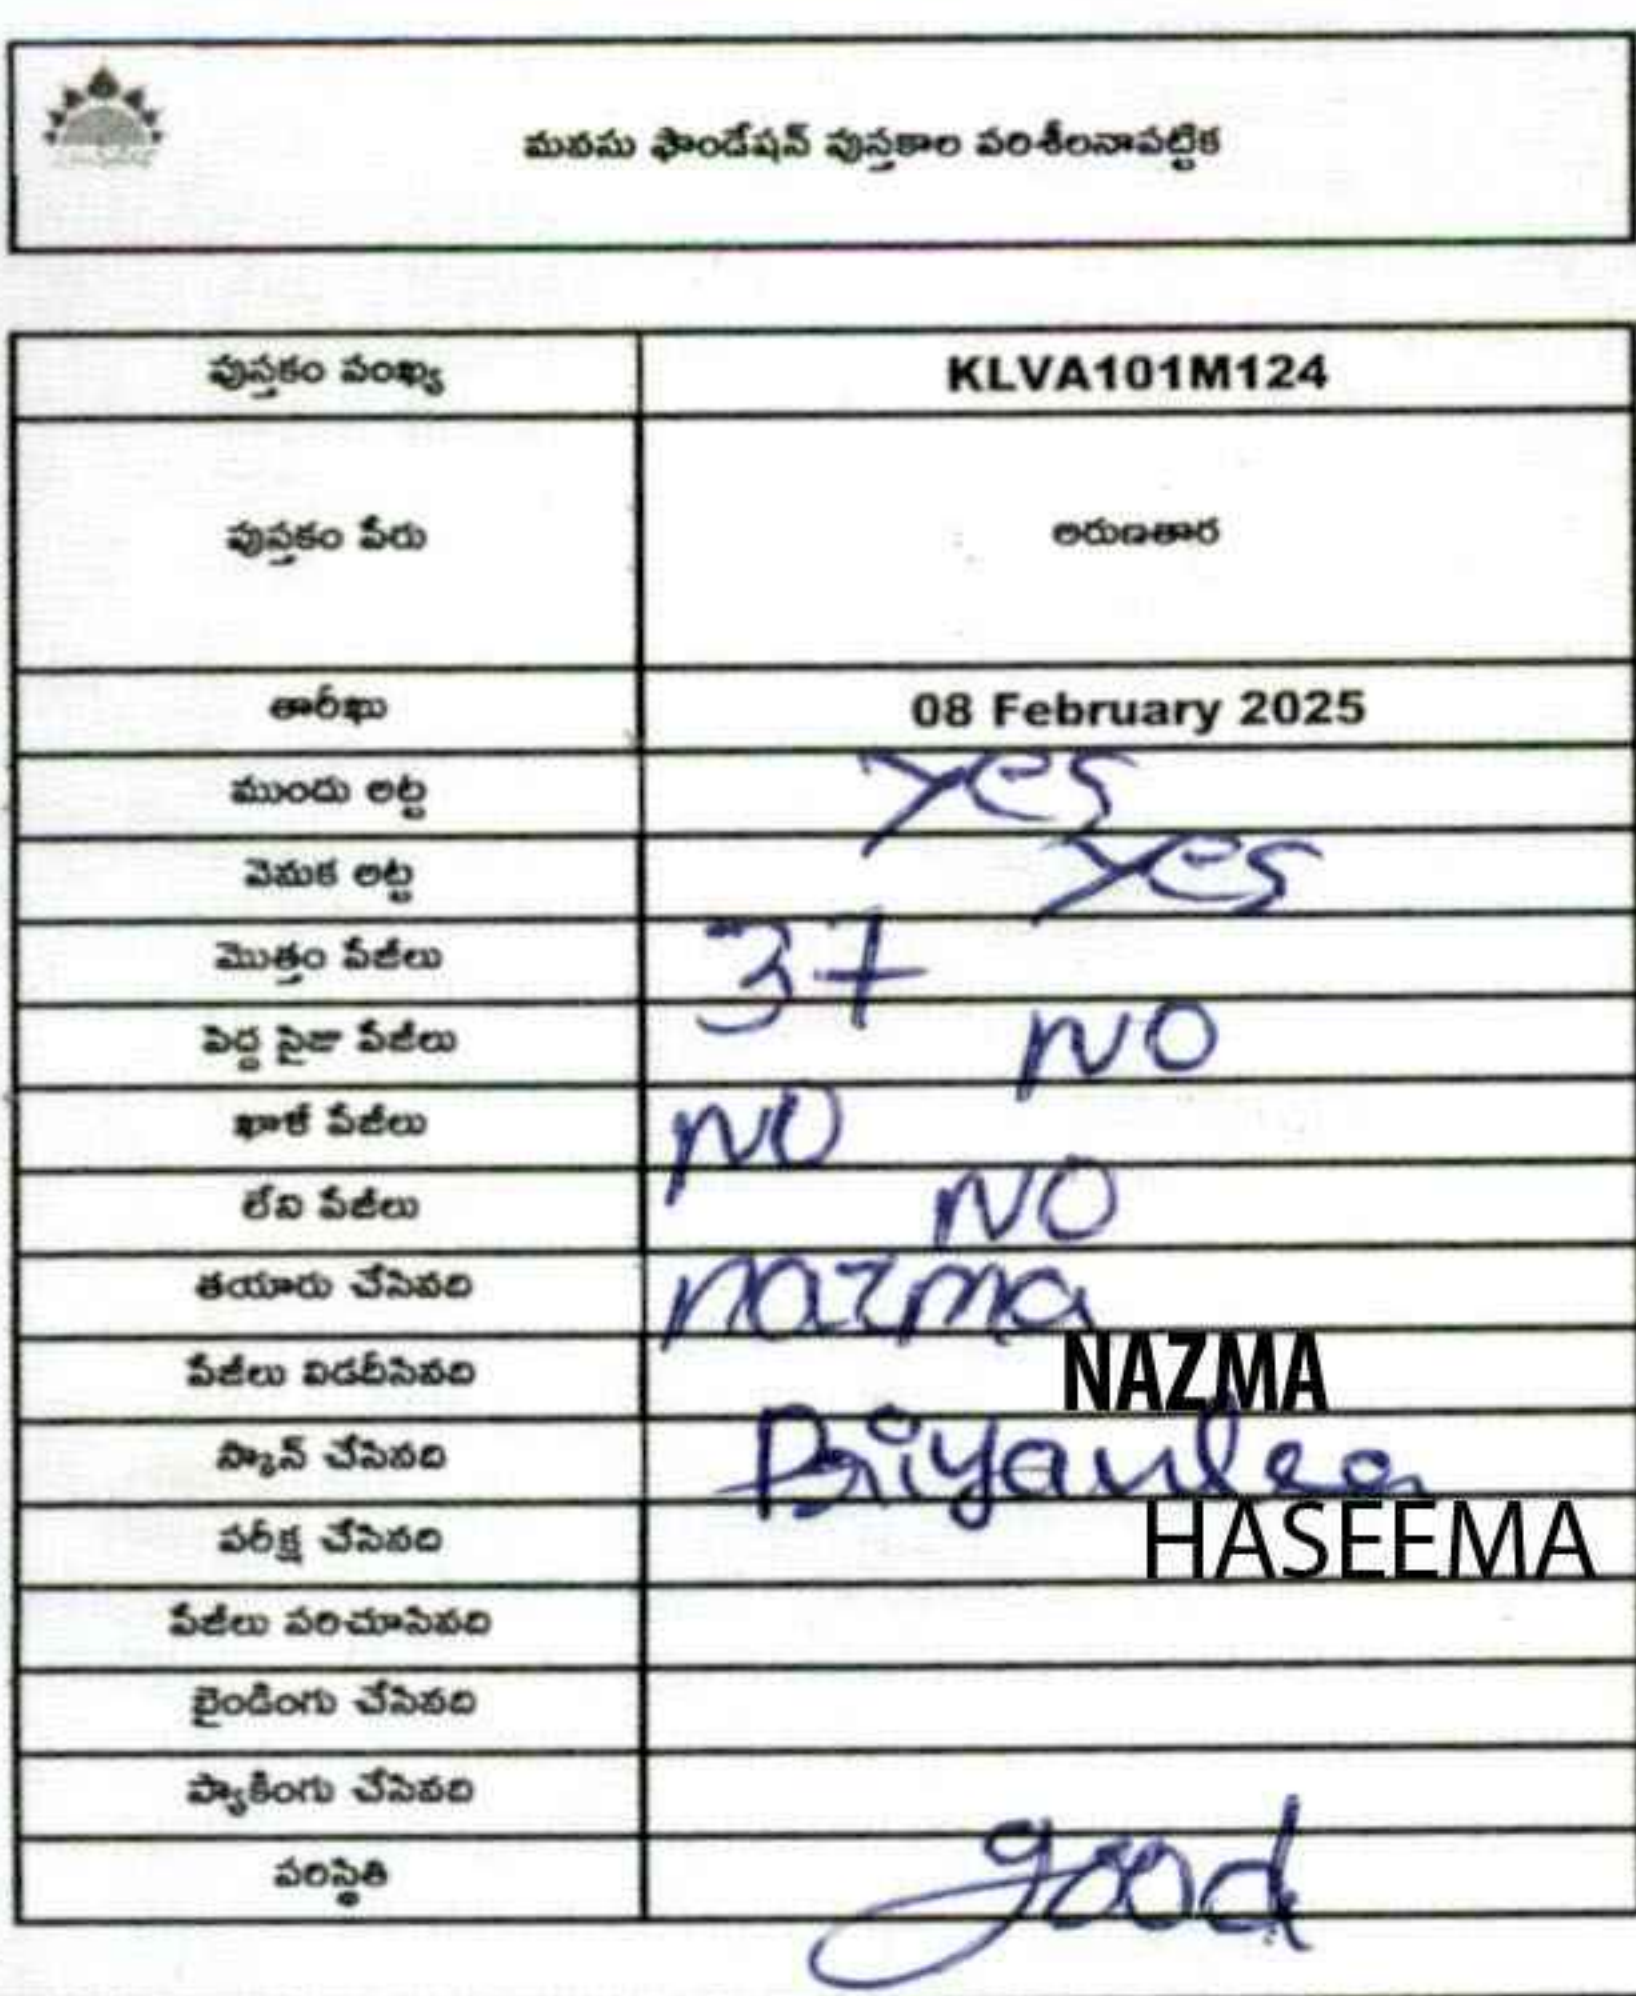 మనసు ఫౌండేషన్ పుస్తకాల పరిశీలనాపట్టిక
పుస్తకం సంఖ్య KLVA101M124
పుస్తకం పేరు అరుణతార
తారీఖు 08 February 2025
ముందు అట్ట yes
వెనుక అట్ట yes
మొత్తం పేజీలు 37
పెద్ద సైజు పేజీలు NO
ఖాళీ పేజీలు NO
లేని పేజీలు NO
తయారు చేసినది nazma
పేజీలు విడదీసినది NAZMA
స్కాన్ చేసినది Priyanka
పరీక్ష చేసినది HASEEMA
పేజీలు సరిచూసినది
బైండింగు చేసినది
ప్యాకింగు చేసినది
పరిస్థితి good